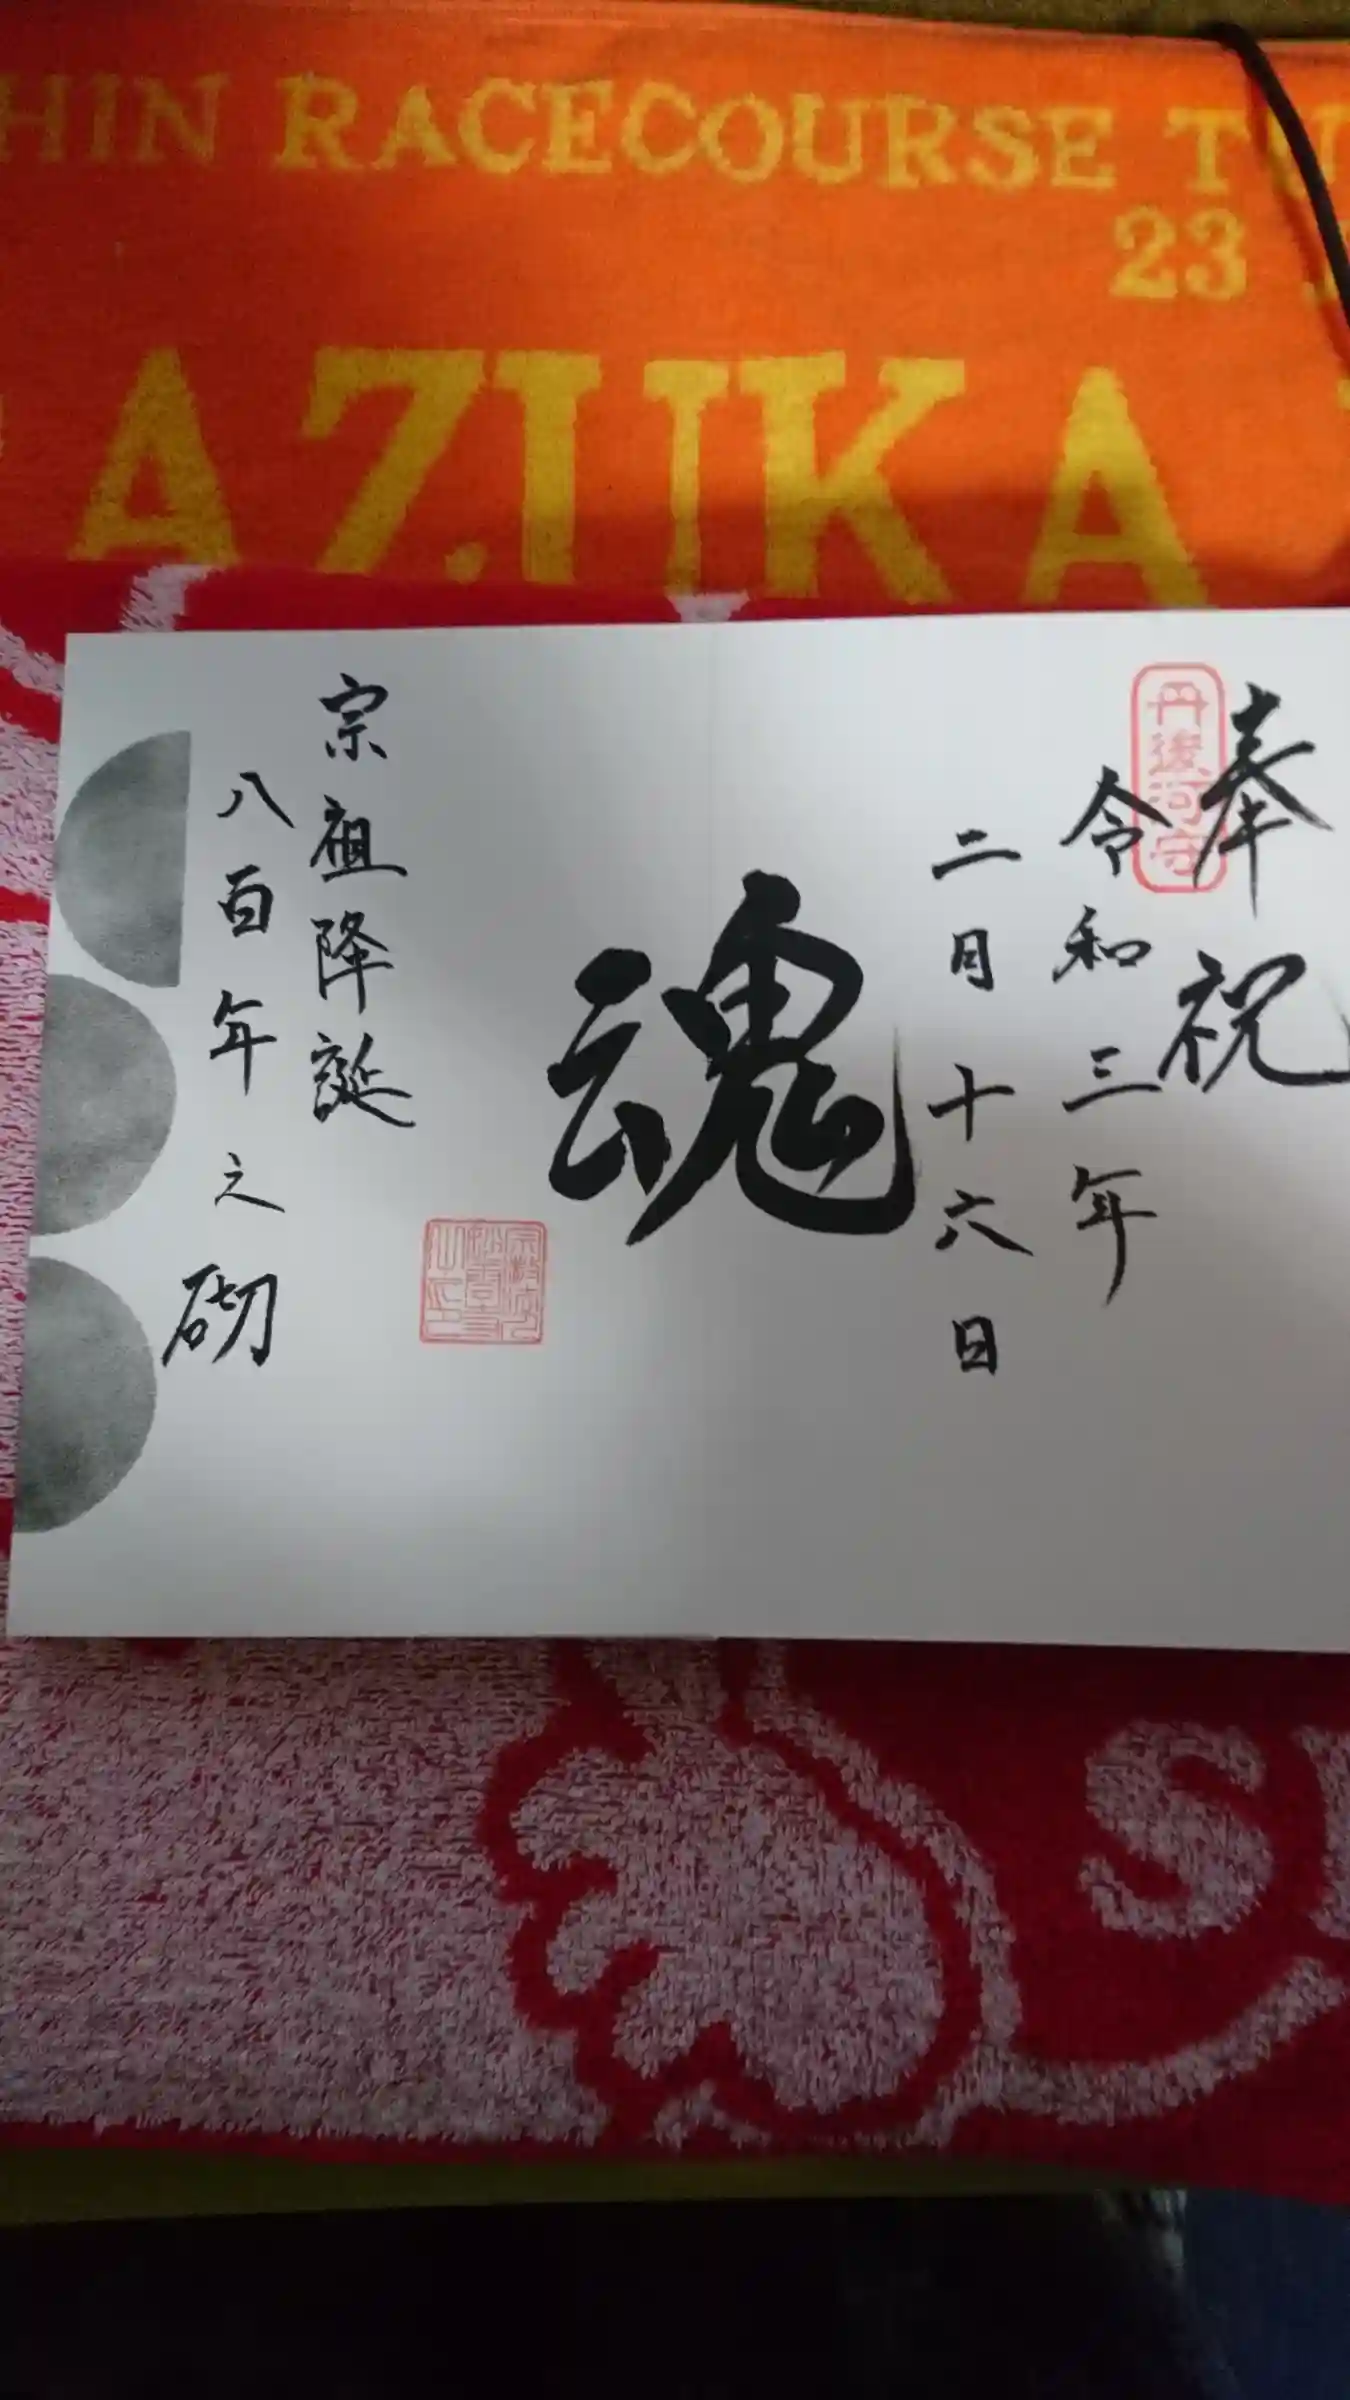 HIN RACECOURSE TU
23
AZUKA
奉祝
丹後河守
令和三年
二月十六日
魂
宗祖降誕
八百年之砌
S